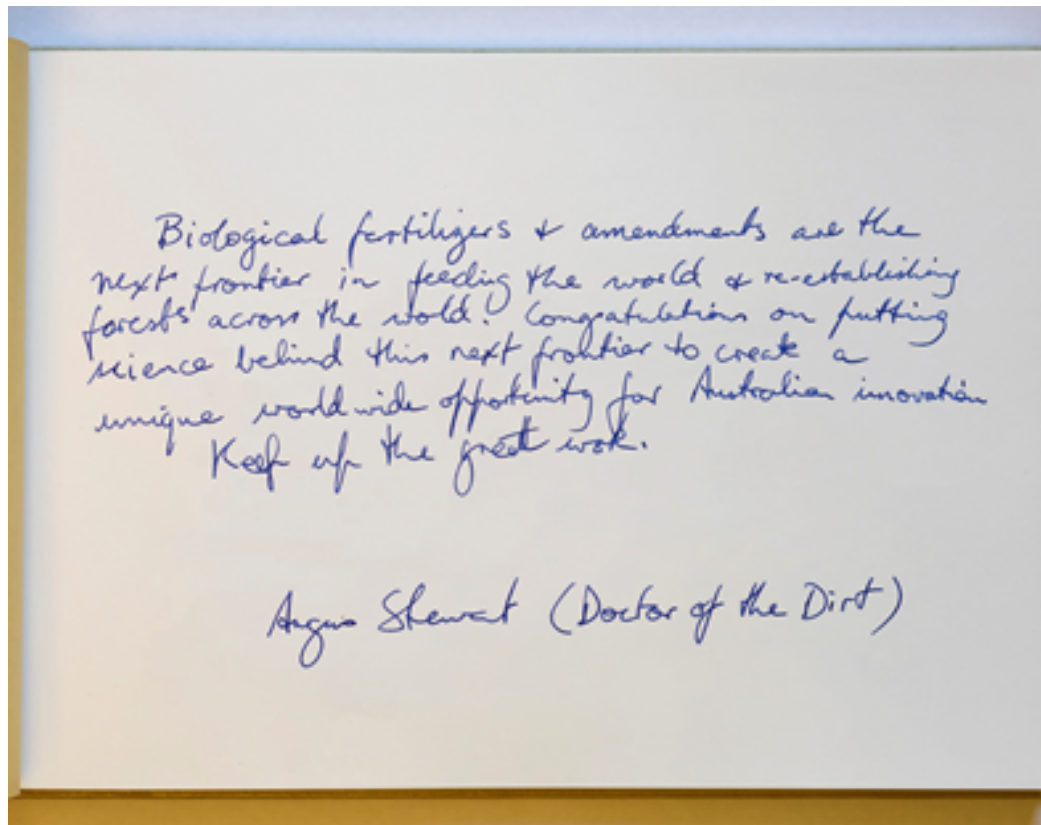 Biological fertilizers & amendments are the
next frontier in feeding the world & re-establishing
forests across the wold! Congratulations on putting
science behind this next frontier to create a
unique worldwide opportunity for Australian innovation
Keep up the great work.
Angus Stewart (Doctor of the Dirt)